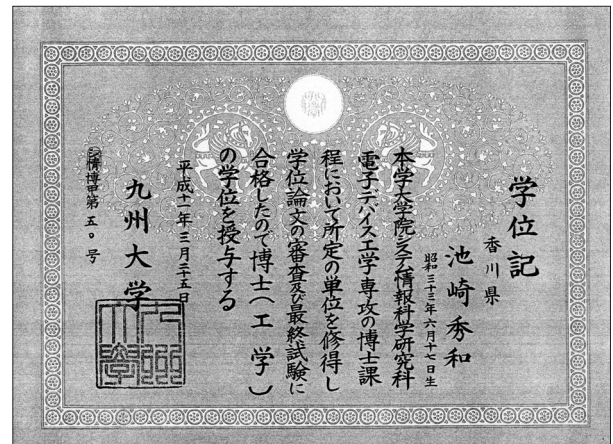 学位記
香川県
池崎秀和
昭和三十三年六月十七日生
本学大学院システム情報科学研究科
電子デバイス工学専攻の博士課
程において所定の単位を修得し
学位論文の審査及び最終試験に
合格したので博士(工学)
の学位を授与する
平成十一年三月二十五日
九州大学
情博甲第五〇号